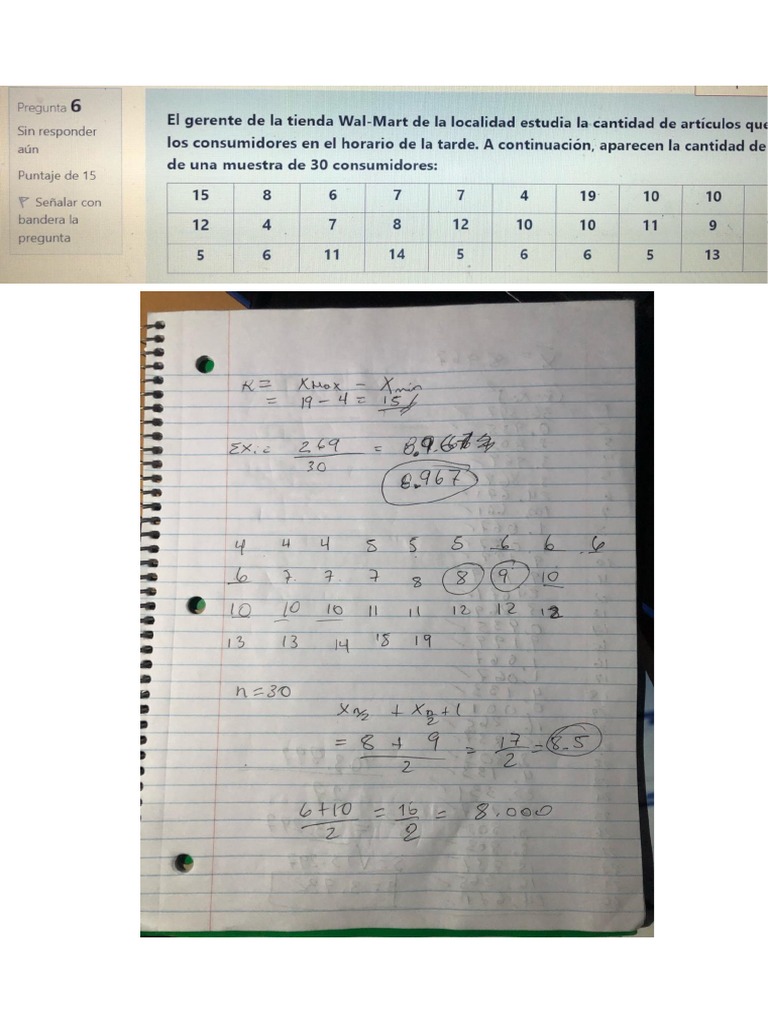 Pregunta 6
Sin responder
aún
Puntaje de 15
Señalar con
bandera la
pregunta
El gerente de la tienda Wal-Mart de la localidad estudia la cantidad de artículos que
los consumidores en el horario de la tarde. A continuación, aparecen la cantidad de
de una muestra de 30 consumidores:
15 8 6 7 7 4 19 10 10
12 4 7 8 12 10 10 11 9
5 6 11 14 5 6 6 5 13
R = XMax - Xmin
= 19 - 4 = 15
Σx. = 269/30 =
8.967
4 4 4 5 5 5 6 6 6
6 7 7 7 8 8 9 10
10 10 10 11 11 12 12 12
13 13 14 15 19
n = 30
x n/2 + x n/2 + 1
= 8 + 9 / 2 = 17/2 = 8.5
6 + 10 / 2 = 16/2 = 8.000